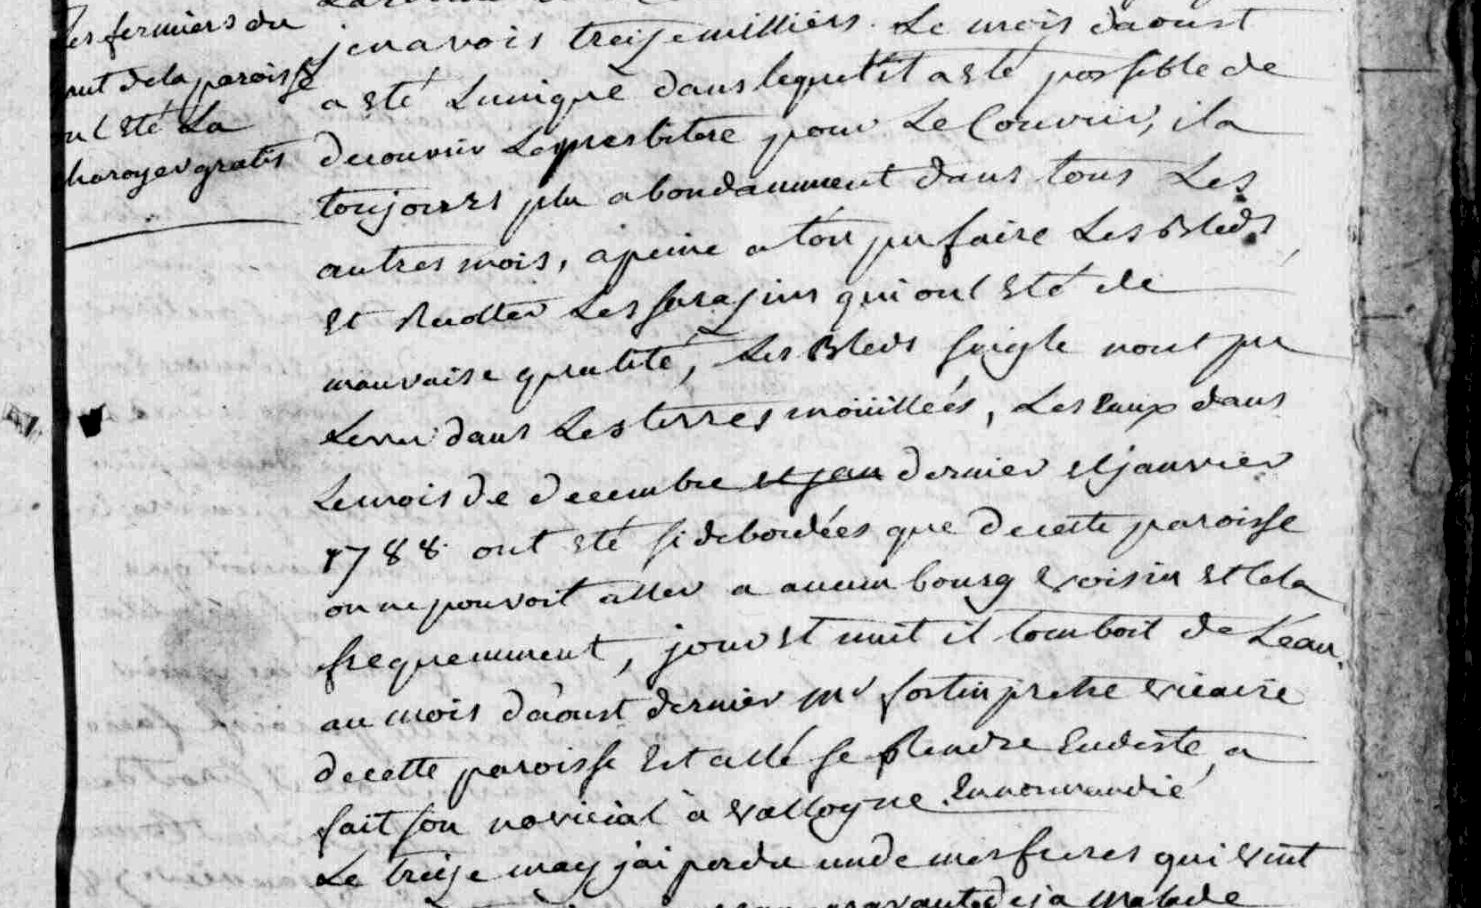 les fermiers du
haut de la paroisse
ont été la
charoyer gratis
jen avois treize milliers. Le mois daoust
a eté Lunique dans lequel il a eté possible de
decouvrir Le presbitere pour Le Couvrir, il a
toujours plu abondamment dans tous Les
autres mois, a peine a ton pu faire Les Bleds
et Les sarazins qui ont eté de
mauvaise qualité, Les Bleds seigle nont pu
Lever dans Les terres moüillées, Les Eaux dans
Le mois de decembre et jan dernier et janvier
1788 ont eté si debordées que de cette paroisse
on ne pouvoit aller a aucun bourg voisin et cela
frequemment, jour et nuit il tomboit de Leau,
au mois daoust dernier Mr fortin pretre vicaire
de cette paroisse Est allé se Rendre Eudiste, a
fait son noviciat à valloyne En normandie
Le treize may jai perdu un de mes freres qui vint
auparavant deja malade